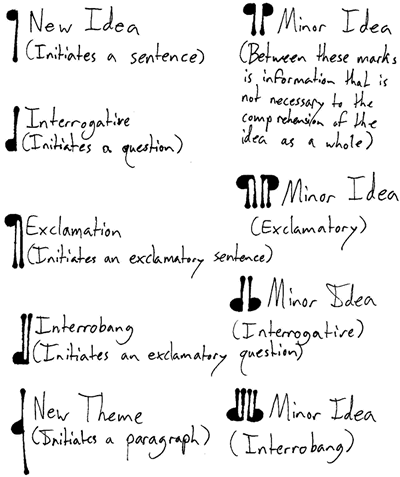 New Idea
(Initiates a sentence)
Interrogative
(Initiates a question)
Exclamation
(Initiates an exclamatory sentence)
Interrobang
(Initiates an exclamatory question)
New Theme
(Initiates a paragraph)
Minor Idea
(Between these marks
is information that is
not necessary to the
comprehension of the
idea as a whole)
Minor Idea
(Exclamatory)
Minor Idea
(Interrogative)
Minor Idea
(Interrobang)